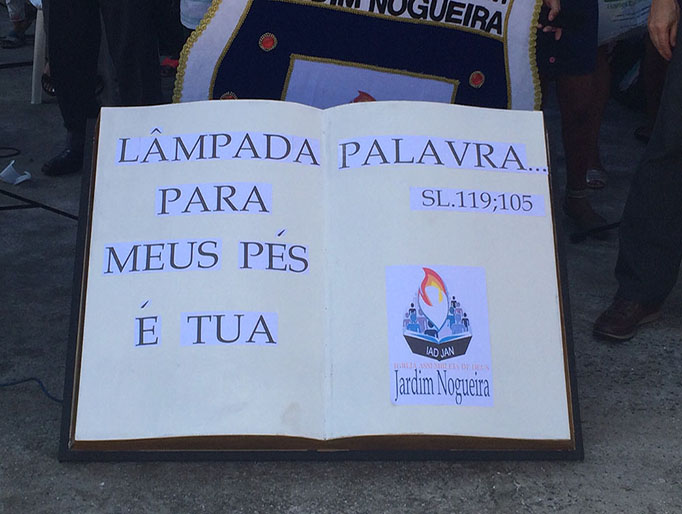 JARDIM NOGUEIRA
LÂMPADA
PARA
MEUS PÉS
É TUA
PALAVRA...
SL.119;105
IAD JAN
IGREJA ASSEMBLEIA DE DEUS
Jardim Nogueira